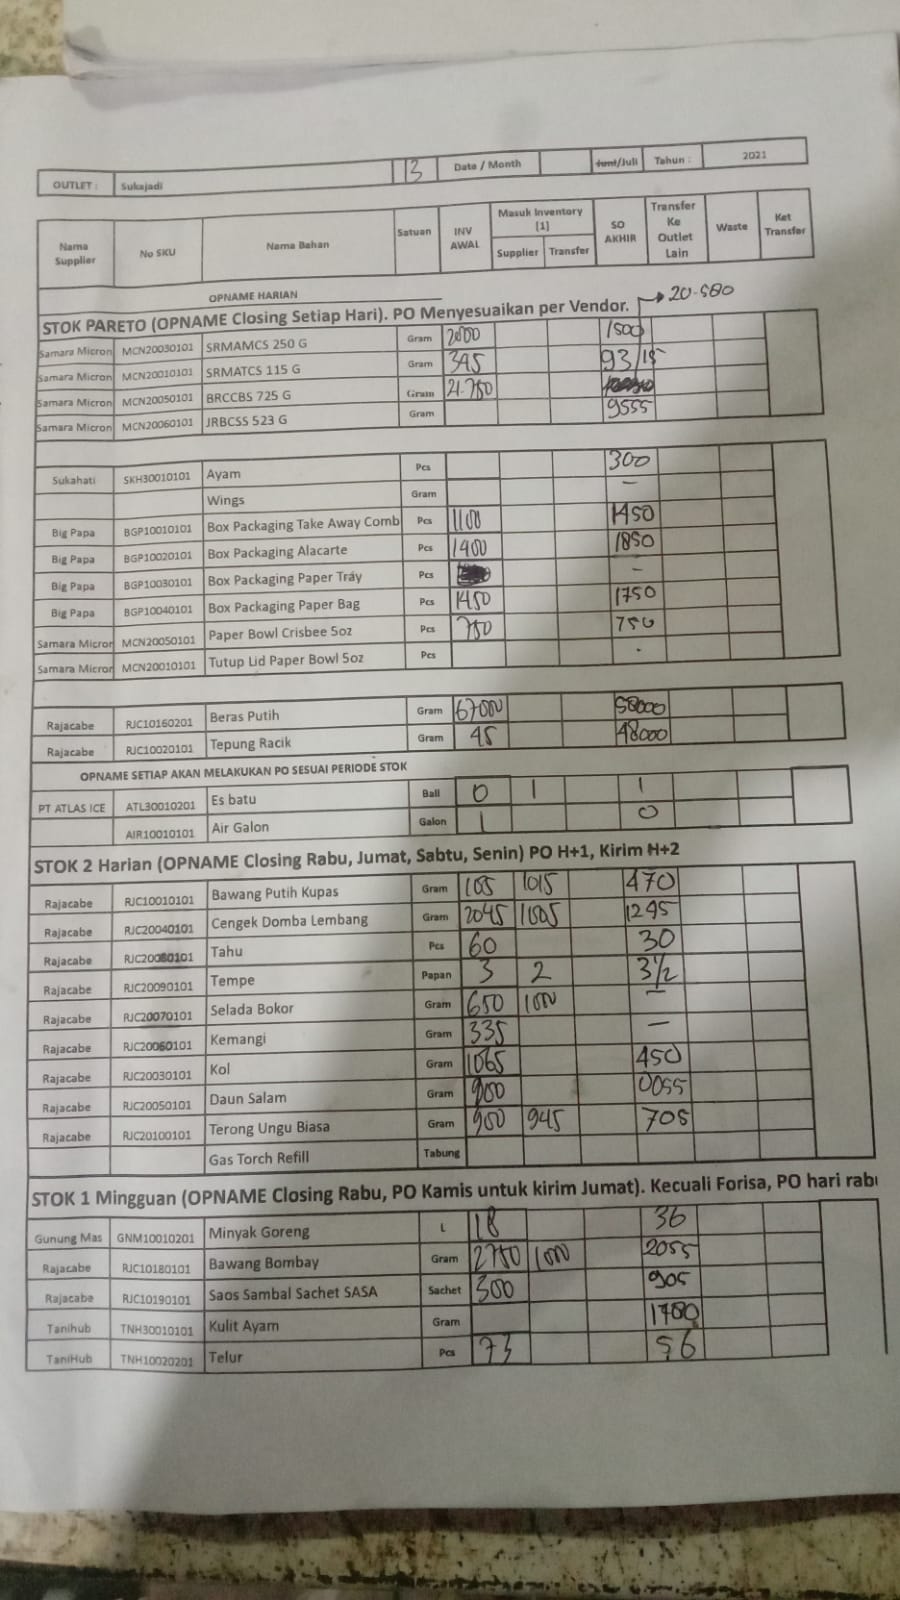 OUTLET : Sukajadi 13 Date / Month Juni/Juli Tahun : 2021
Nama Supplier No SKU Nama Bahan Satuan INV AWAL Masuk Inventory (1) Supplier Transfer SO AKHIR Transfer Ke Outlet Lain Waste Ket Transfer
OPNAME HARIAN
STOK PARETO (OPNAME Closing Setiap Hari). PO Menyesuaikan per Vendor. 20.580
Samara Micron MCN20030101 SRMAMCS 250 G Gram 2000 1500
Samara Micron MCN20010101 SRMATCS 115 G Gram 345 93/15
Samara Micron MCN20050101 BRCCBS 725 G Gram 21.750
Samara Micron MCN20060101 JRBCSS 523 G Gram 9555
Sukahati SKH30010101 Ayam Pcs 300
Wings Gram –
Big Papa BGP10010101 Box Packaging Take Away Comb Pcs 1100 1450
Big Papa BGP10020101 Box Packaging Alacarte Pcs 1400 1850
Big Papa BGP10030101 Box Packaging Paper Tray Pcs –
Big Papa BGP10040101 Box Packaging Paper Bag Pcs 1450 1750
Samara Micror MCN20050101 Paper Bowl Crisbee 5oz Pcs 750 750
Samara Micror MCN20010101 Tutup Lid Paper Bowl 5oz Pcs
Rajacabe RJC10160201 Beras Putih Gram 67000 58000
Rajacabe RJC10020101 Tepung Racik Gram 45 48000
OPNAME SETIAP AKAN MELAKUKAN PO SESUAI PERIODE STOK
PT ATLAS ICE ATL30010201 Es batu Ball 0 1 1
AIR10010101 Air Galon Galon 1 0
STOK 2 Harian (OPNAME Closing Rabu, Jumat, Sabtu, Senin) PO H+1, Kirim H+2
Rajacabe RJC10010101 Bawang Putih Kupas Gram 185 1015 470
Rajacabe RJC20040101 Cengek Domba Lembang Gram 2045 1005 1295
Rajacabe RJC20080101 Tahu Pcs 60 30
Rajacabe RJC20090101 Tempe Papan 3 2 3½
Rajacabe RJC20070101 Selada Bokor Gram 650 1000 –
Rajacabe RJC20060101 Kemangi Gram 335 –
Rajacabe RJC20030101 Kol Gram 1065 450
Rajacabe RJC20050101 Daun Salam Gram 900 0055
Rajacabe RJC20100101 Terong Ungu Biasa Gram 950 945 705
Gas Torch Refill Tabung
STOK 1 Mingguan (OPNAME Closing Rabu, PO Kamis untuk kirim Jumat). Kecuali Forisa, PO hari rabu
Gunung Mas GNM10010201 Minyak Goreng L 18 36
Rajacabe RJC10180101 Bawang Bombay Gram 2750 1000 2055
Rajacabe RJC10190101 Saos Sambal Sachet SASA Sachet 300 905
Tanihub TNH30010101 Kulit Ayam Gram 1780
TaniHub TNH10020201 Telur Pcs 73 56